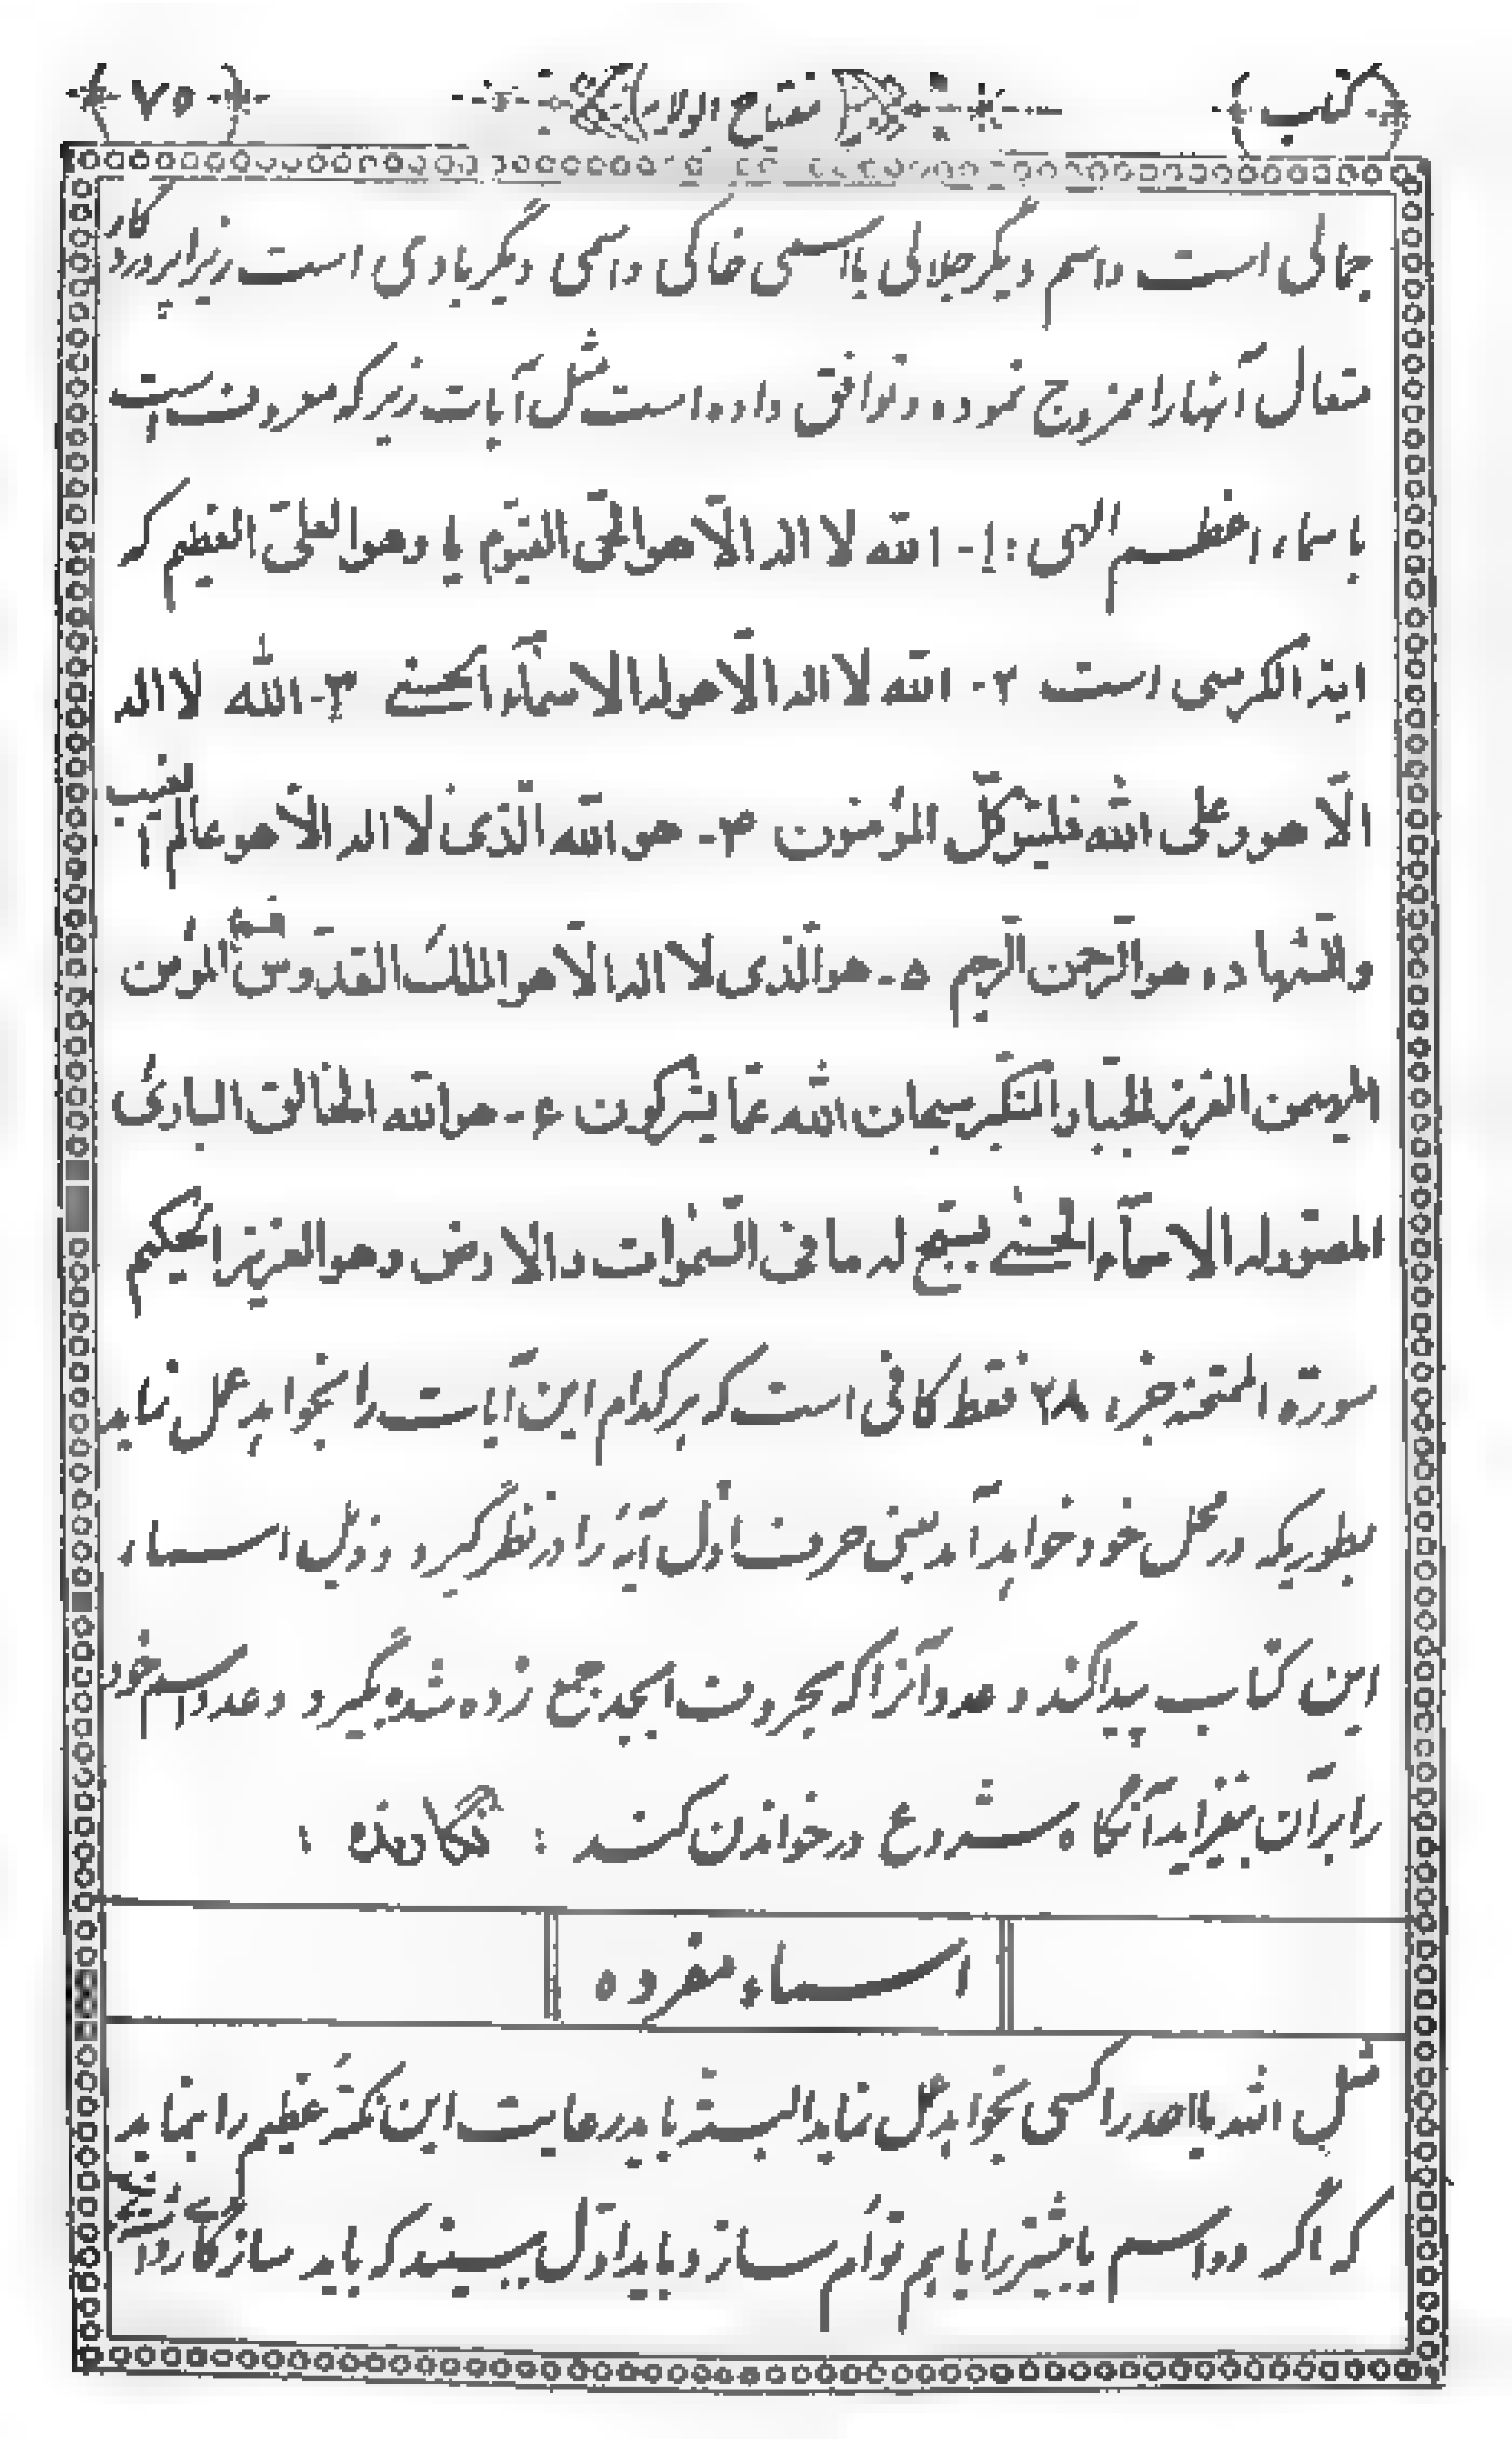 کتاب مفتاح الولاء ۷۵
جمالی است و اسم دیگر جلالی یا اسمی خاکی و اسمی دیگر بادی است زیرا پروردگار
متعال آنها را ممزوج نموده و توافق داده است مثل آیات زیر که معروف است
باسماء اعظم الهی : ۱- الله لا اله الّا هو الحّی القیّوم یا وهو العلیّ العظیم که
ایة الکرسی است ۲- الله لا اله الّا هو له الاسمآء الحسنی ۳- الله لا اله
الّا هو وعلی الله فلیتوکّل المؤمنون ۴- هو الله الّذی لا اله الّا هو عالم الغیب
والشّهاده هو الرّحمن الرّحیم ۵- هو الّذی لا اله الّا هو الملك القدّوس المؤمن
المهیمن العزیز الجبّار المتکبّر سبحان الله عمّا یشرکون ۶- هو الله الخالق البارئ
المصوّر له الاسمآء الحسنی یسبّح له ما فی السّموات و الارض وهو العزیز الحکیم
سورة الممتحنه جزء ۲۸ فقط کافی است که هر کدام این آیات را بخواهد عمل نماید
بطوریکه در محل خود خواهد آمد یعنی حرف اوّل آیه را در نظر گیرد و ذیل اسماء
این کتاب پیدا کند و عدد آنرا که بحروف ابجد جمع زده شده بگیرد و عدد اسم خود
را بر آن بیفزاید آنگاه شروع در خواندن کند :
اسماء مفرده
مثل الله یا احد را کسی بخواهد عمل نماید البته باید رعایت این نکتهٔ عظیم را بنماید
که اگر دو اسم یا بیشتر را با هم توأم سازد باید اوّل ببیند که باید سازگار